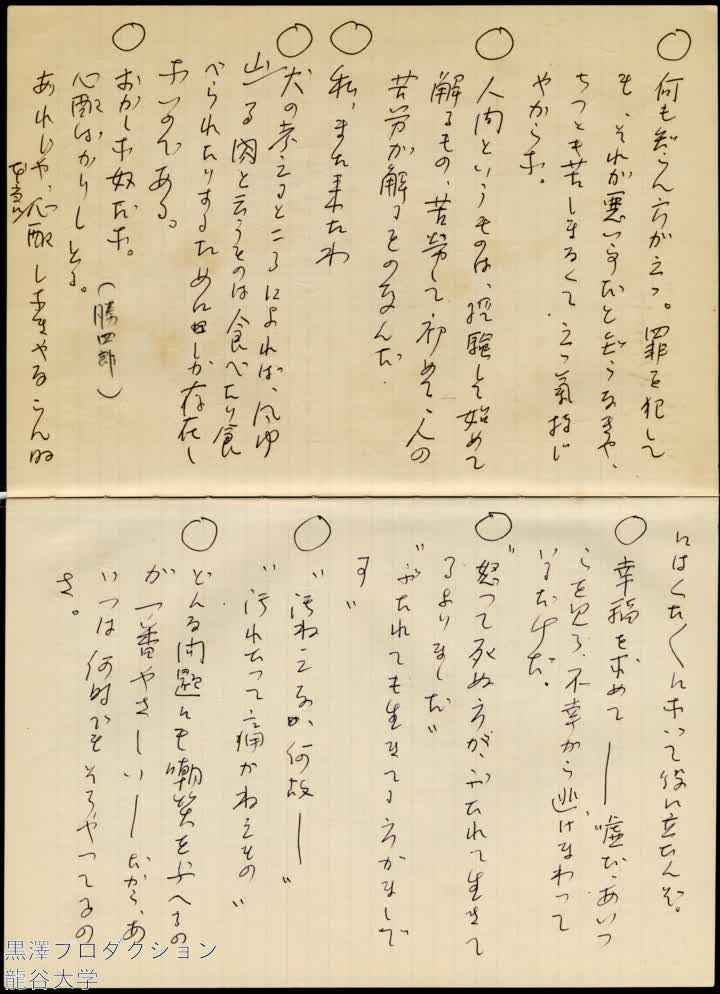 ○何も知らん方がえゝ。罪を犯して
も、それが悪い事だと知らなきや、
ちつとも苦しまなくて えゝ氣持ぢ
やからな。
○人間というものは、経験して始めて
解るもの、苦勞して初めて、人の
苦労が解るものなんだ
○私、また来たわ
○犬の考えるところによれば、凡ゆ
る肉と云うものは食べたり食
べられたりするためにしか存在し
ないのである。
○おかしな奴だな。
心配ばかりしとる。 (勝四郎)
あれじや、心配しなきやならん時
本当に
にはくた／＼になって役に立たんぞ。
○幸福を求めて——嘘だ、あいつ
らを見ろ、不幸から逃げまわって
いるだけだ。
○“怒つて死ぬ方が、ぶたれて生きて
るよりましだ”
“ぶたれても生きてる方がましで
す”
○“汚ねえなあ、何故——”
“汚れたって、痛かねえもの”
○どんな問題にも嘲笑を与へるの
が一番やさしい——だから、あ
いつは何時でもそうやつてるの
さ。
黒澤プロダクション
龍谷大学